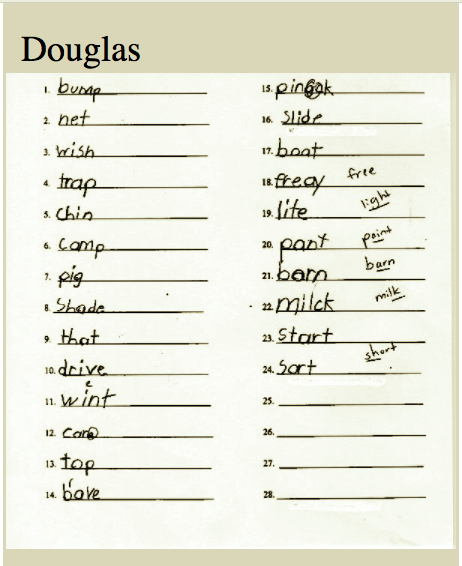 Douglas
1. bump
2. net
3. wish
4. trap
5. chin
6. camp
7. pig
8. Shade
9. that
10. drive
e
11. wint
12. care
13. top
14. bave
15.
16. Slide
17. boat
18. freay free
19. lite light
20. pant paint
21. born barn
22. milck milk
23. start
24. Sort short
25.
26.
27.
28.